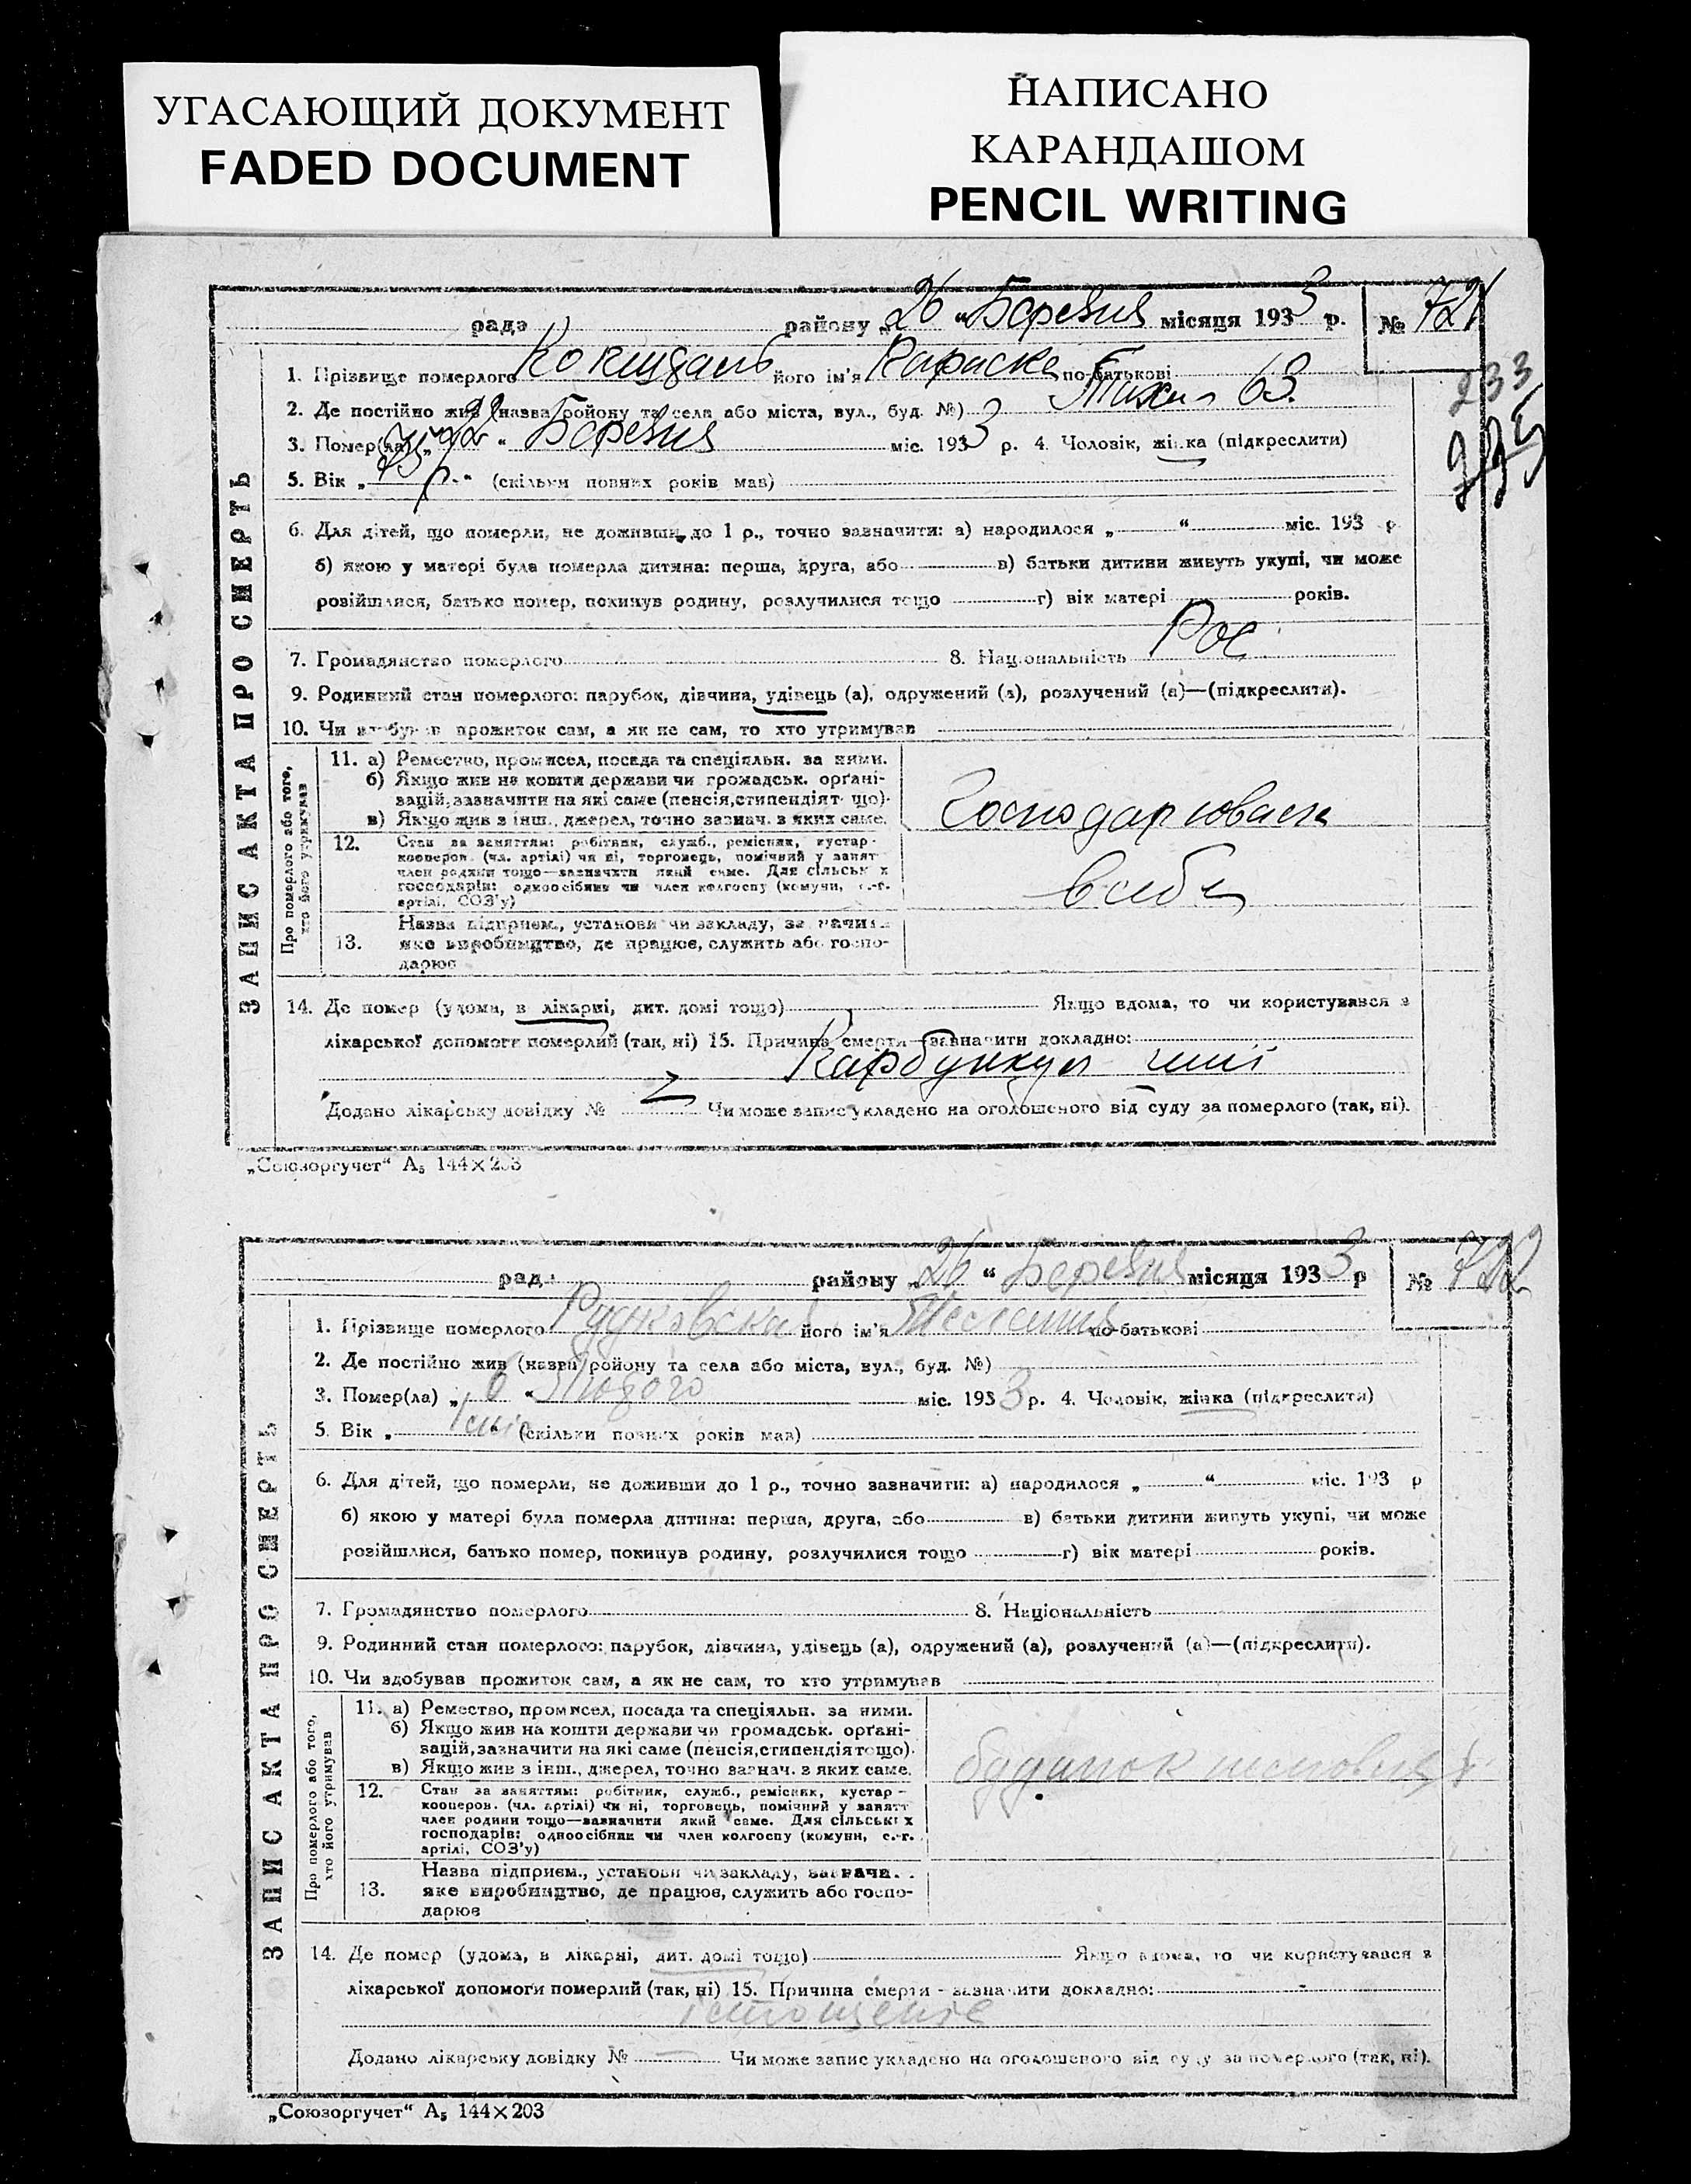 УГАСАЮЩИЙ ДОКУМЕНТ
FADED DOCUMENT
НАПИСАНО
КАРАНДАШОМ
PENCIL WRITING
ЗАПИС АКТА ПРО СМЕРТЬ
рада району „26 “ Березня місяця 1933 р. № 721
1. Прізвище померлого його ім'я по-батькові
2. Де постійно жив (назва ройону та села або міста, вул., буд. №) 63.
233
3. Помер(ла) „ “ Березня міс. 1933 р. 4. Чоловік, жінка (підкреслити)
5. Вік „ 75 р. “ (скільки повних років мав)
6. Для дітей, що померли, не доживши до 1 р., точно зазначити: а) народилося „ “ міс. 193 р
б) якою у матері була померла дитина: перша, друга, або в) батьки дитини живуть укупі, чи може
розійшлися, батько помер, покинув родину, розлучилися тощо г) вік матері років.
7. Громадянство померлого 8. Національність Рос
9. Родинний стан померлого: парубок, дівчина, удівець (а), одружений (а), розлучений (а)—(підкреслити).
10. Чи здобував прожиток сам, а як не сам, то хто утримував
Про померлого або того, хто його утримував
11. а) Ремество, промисел, посада та спеціяльн. за ними.
б) Якщо жив на кошти держави чи громадськ. орґані-
зацій, зазначити на які саме (пенсія, стипендія т що).
в) Якщо жив з інш., джерел, точно зазнач. з яких саме.
Господарювала
12. Стан за заняттям: робітник, служб., ремісник, кустар-
кооперов. (чл. артілі) чи ні, торговець, помічний у занят
член родини тощо—зазначити який саме. Для сільськ х
господарів: одноосібник чи член колгоспу (комуни, с.-г.
артілі, СОЗ'у)
в себе
13. Назва підприєм., установи чи закладу, за начи
яке виробництво, де працює, служить або госпо-
дарює
14. Де помер (удома, в лікарні, дит. домі тощо) Якщо вдома, то чи користувався з
лікарської допомоги померлий (так, ні) 15. Причина смерти—зазначити докладно:
Карбункул шиї
Додано лікарську довідку № Чи може запис укладено на оголошеного від суду за померлого (так, ні).
„Союзоргучет“ А5 144×203
ЗАПИС АКТА ПРО СМЕРТЬ
рад району „26 “ Березня місяця 1933 р № 722
1. Прізвище померлого Рудковська його ім'я по-батькові
2. Де постійно жив (назва ройону та села або міста, вул., буд. №)
3. Помер(ла) „ 6 “ Лютого міс. 1933 р. 4. Чоловік, жінка (підкреслити)
5. Вік „ “ (скільки повних років мав)
6. Для дітей, що померли, не доживши до 1 р., точно зазначити: а) народилося „ “ міс. 193 р
б) якою у матері була померла дитина: перша, друга, або в) батьки дитини живуть укупі, чи може
розійшлися, батько помер, покинув родину, розлучилися тощо г) вік матері років.
7. Громадянство померлого 8. Національність
9. Родинний стан померлого: парубок, дівчина, удівець (а), одружений (а), розлучений (а)—(підкреслити).
10. Чи здобував прожиток сам, а як не сам, то хто утримував
Про померлого або того, хто його утримував
11. а) Ремество, промисел, посада та спеціяльн. за ними.
б) Якщо жив на кошти держави чи громадськ. орґані-
зацій, зазначити на які саме (пенсія, стипендія тощо).
в) Якщо жив з інш., джерел, точно зазнач. з яких саме.
будинок
12. Стан за заняттям: робітник, служб., ремісник, кустар-
кооперов. (чл. артілі) чи ні, торговець, помічний у занятт
член родини тощо—зазначити який саме. Для сільськ х
господарів: одноосібник чи член колгоспу (комуни, с.-г.
артілі, СОЗ'у)
13. Назва підприєм., установи чи закладу, зазнача.
яке виробництво, де працює, служить або госпо-
дарює
14. Де помер (удома, в лікарні, дит. домі тощо) Якщо вдома, то чи користувався з
лікарської допомоги померлий (так, ні) 15. Причина смерти - зазначити докладно:
Додано лікарську довідку № — Чи може запис укладено на оголошеного від суду за померлого (так, ні).
„Союзоргучет“ А5 144×203